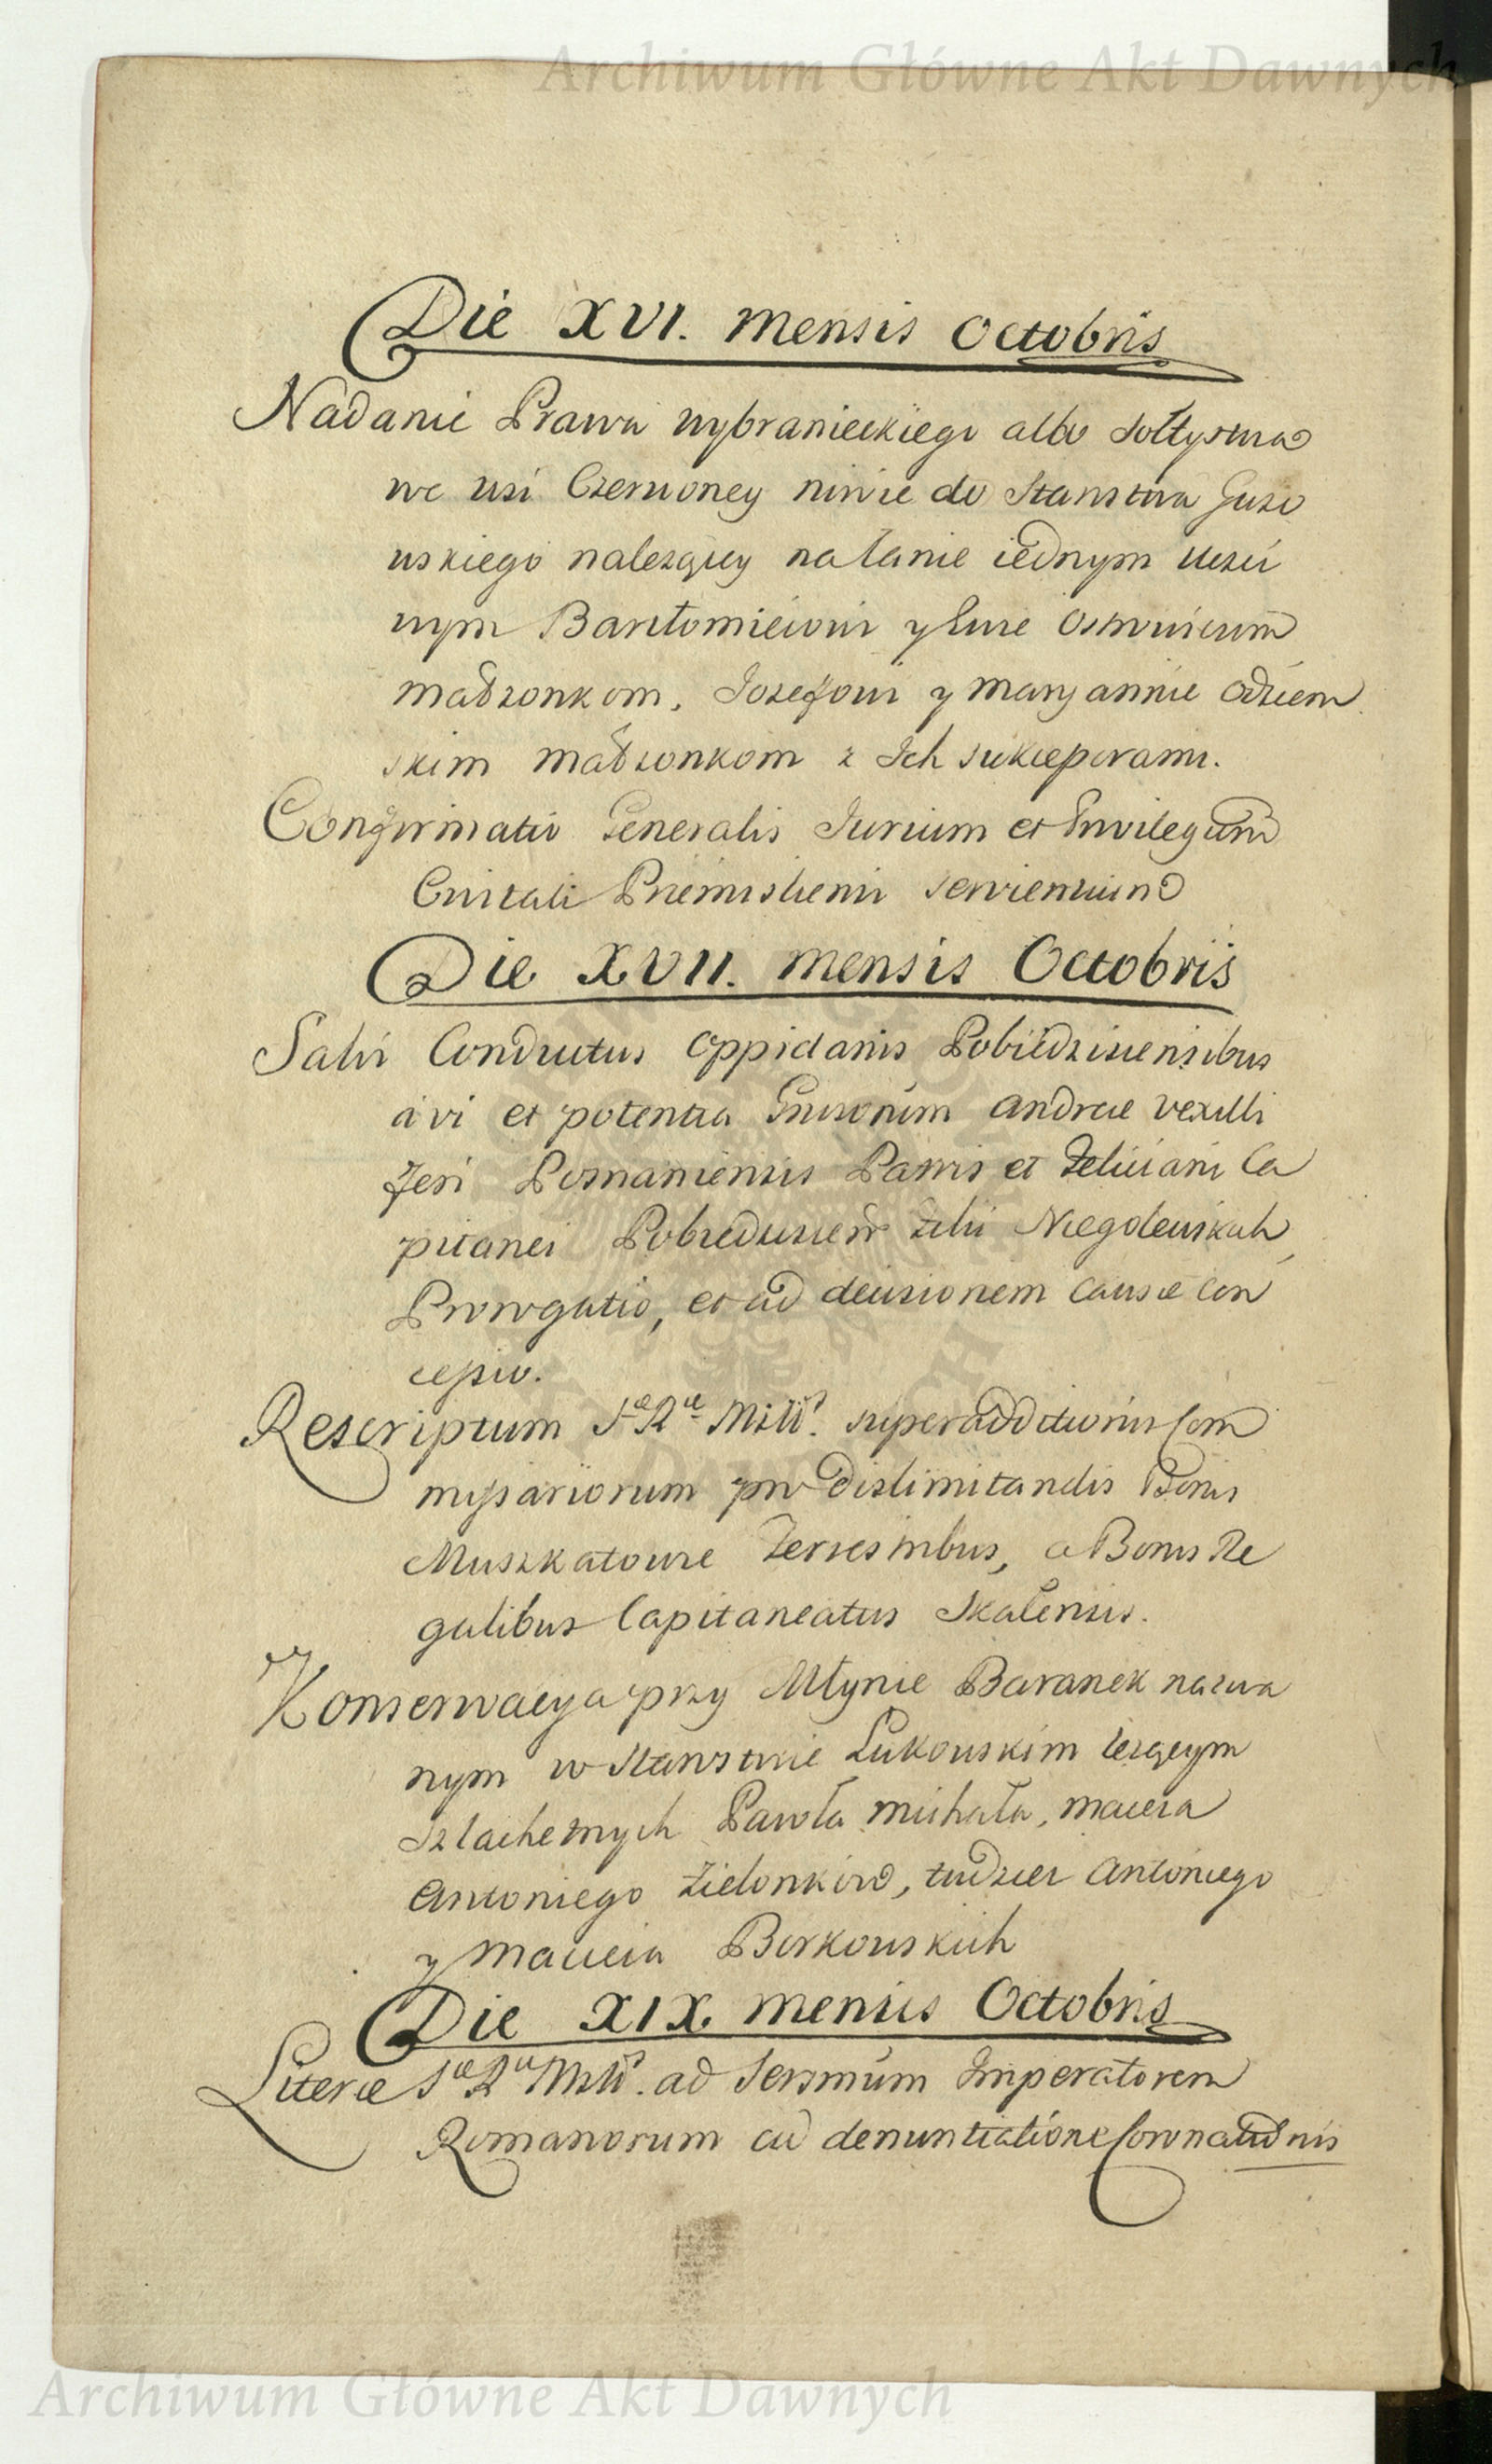 Archiwum Główne Akt Dawnych
Die XVI. mensis Octobris
Nadanie Prawa wybranieckiego albo Sołtystwa
we wsi Czerwoney niwie do Starostwa Guzo
wskiego należącey na łanie iednym uczci
wym Bartłomieiowi y Ewie
małżonkom, Jozefowi y Maryannie
skim małżonkom z Ich sukcessorami.
Confirmatio Generalis Jurium et Privilegiorum
Civitati Praemisliensi servientium
Die XVII. mensis Octobris
Salvi Conductus oppidanis Pobiedziscensibus
a vi et potentia Gnrosorum Andreae Vexilli
feri Posnaniensis Patris et Feliciani Ca
pitanei Pobiedziscen filii Niegolewskich
Prorogatio, et ad decisionem causae con
cessio.
Rescriptum S^ae R^ae Mttis. superadditionis Com
missariorum pro dislimitandis Bonis
Muszkatowce Terrestribus, a Bonis Re
galibus Capitaneatus Skalensis.
Konserwacya przy Młynie Baranek nazwa
nym w Starostwie Łukowskim leżącym
Szlachetnych Pawła Michała, Macieia
Antoniego Zielonkow, tudziez Antoniego
y Macieia Borkowskich
Die XIX. mensis Octobris
Literae S^ae R^ae Mttis. ad Sersmum Imperatorem
Romanorum cu denuntiatione Coronationis
Archiwum Główne Akt Dawnych